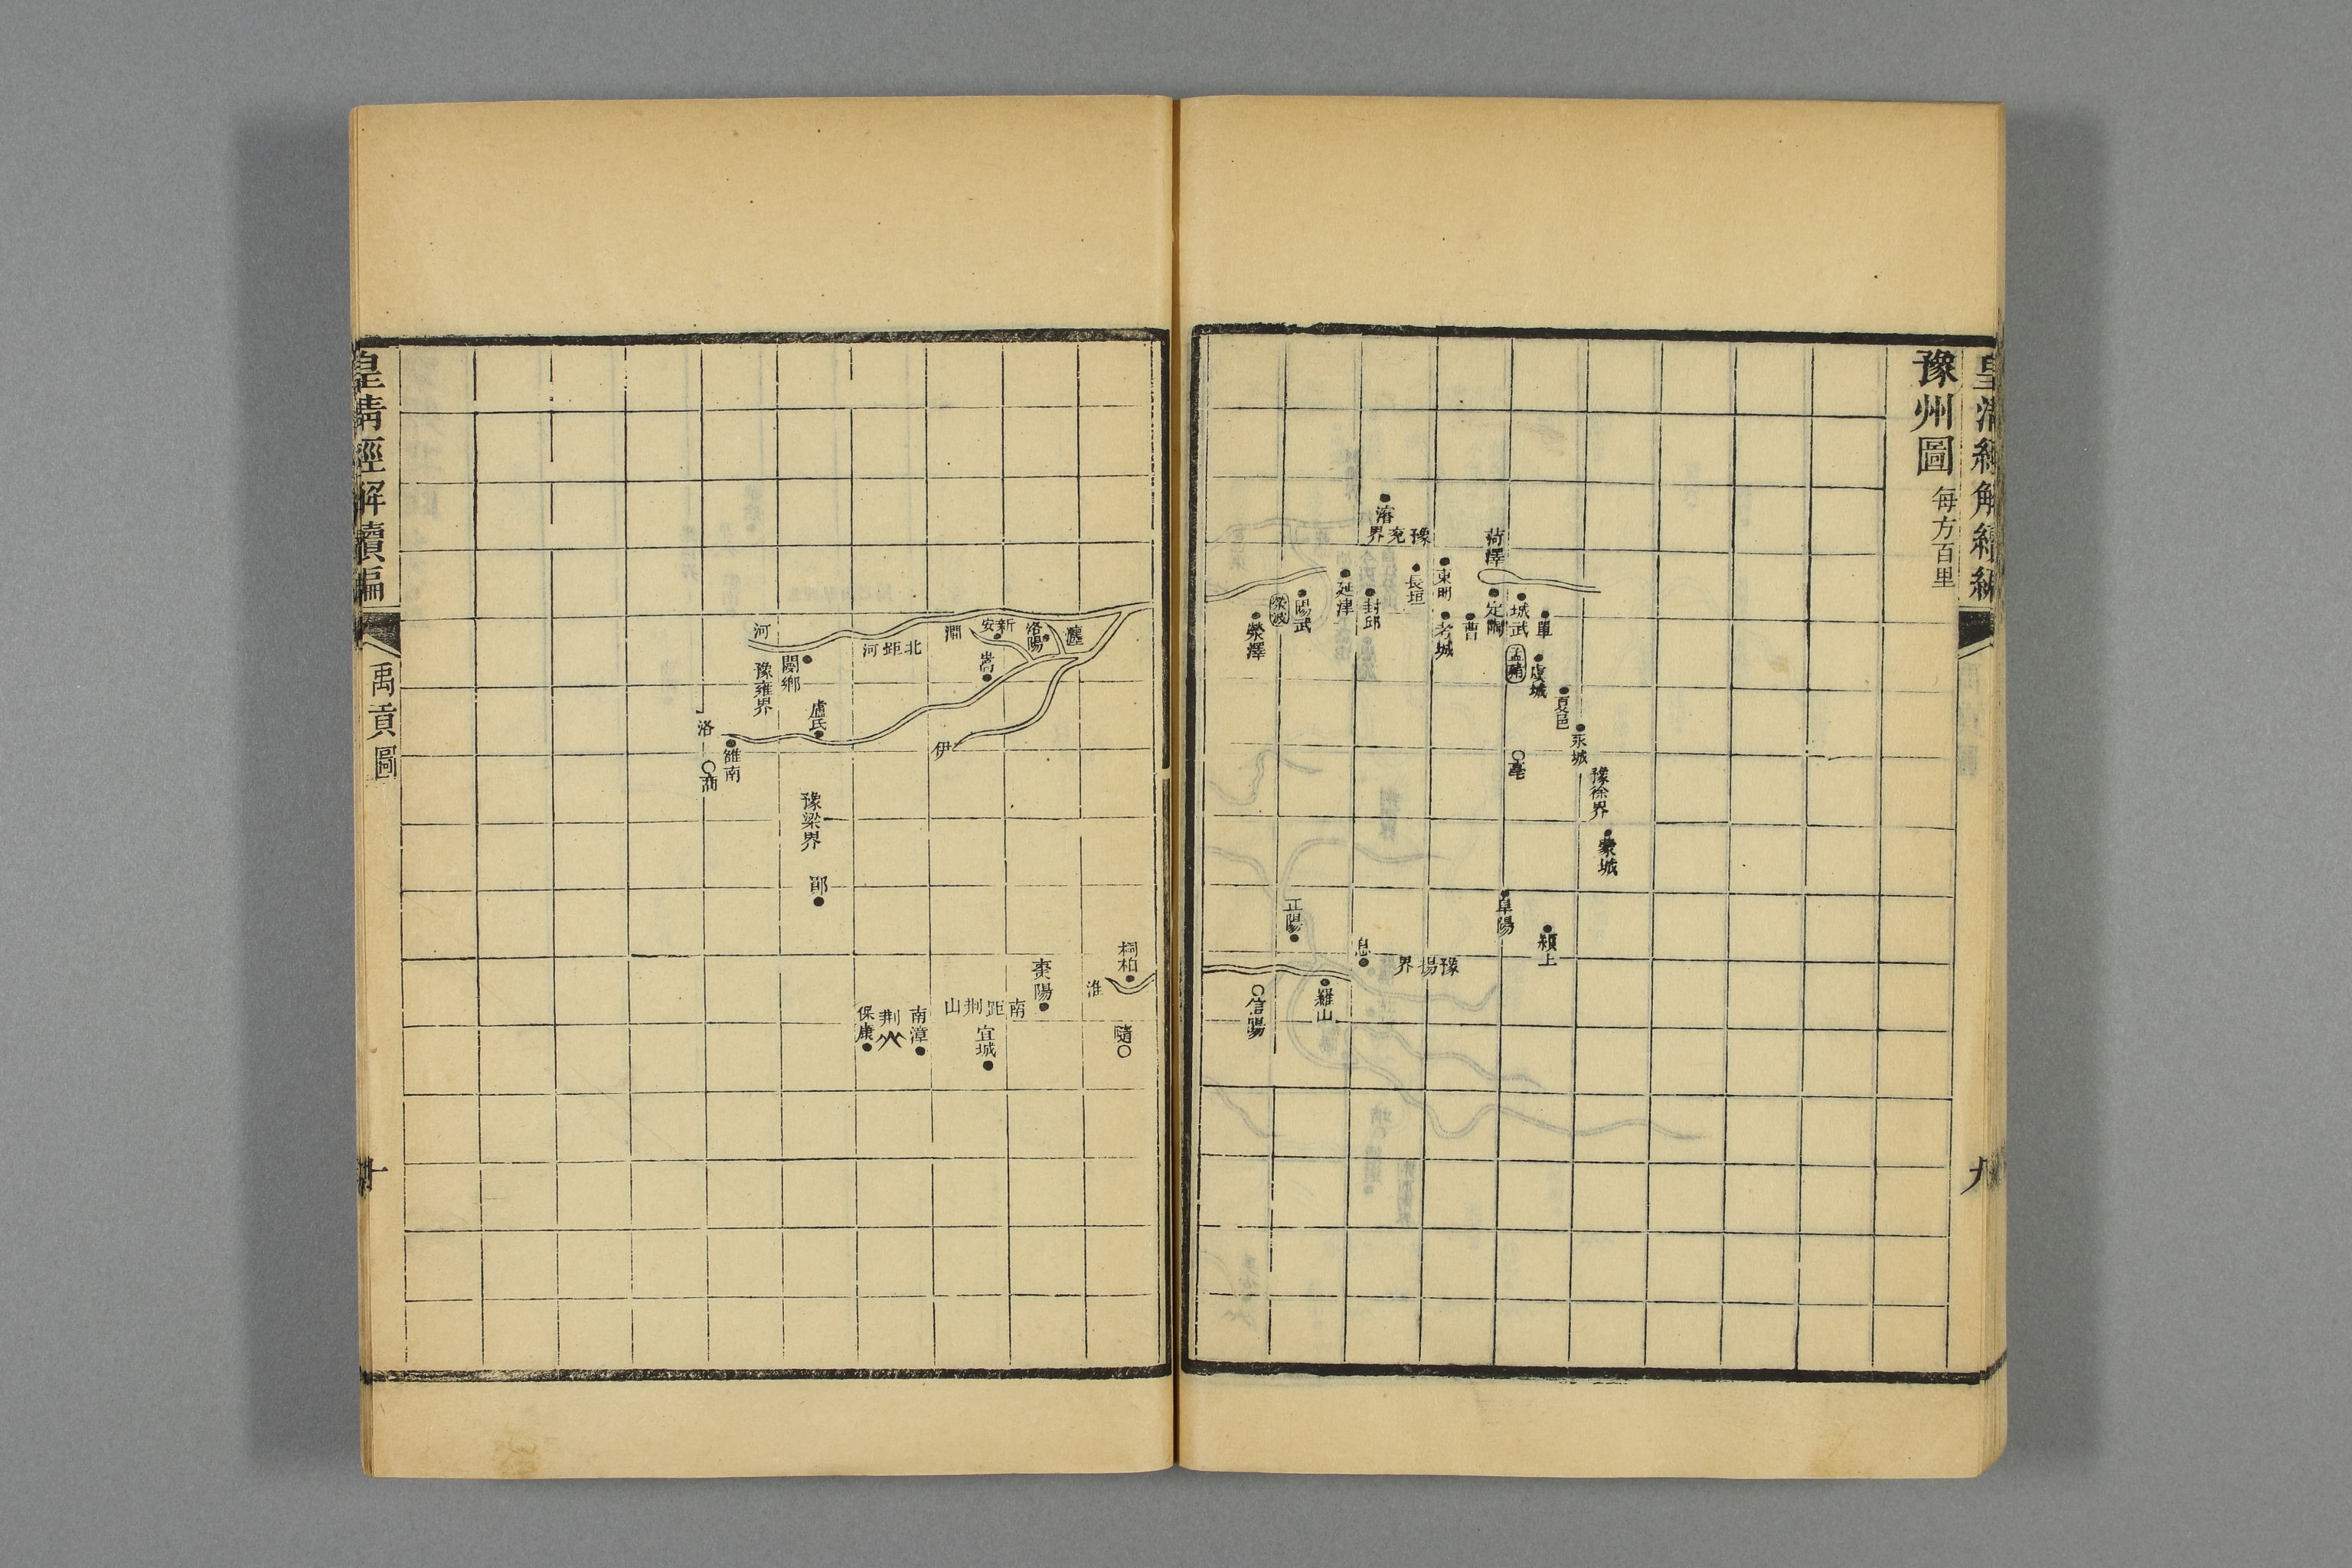 皇清經解續編
豫州圖
每方百里
九
豫徐界
蒙城
永城
夏邑
虞城
單
城武
孟豬
亳
潁上
菏澤
定陶
阜陽
曹
東明
考城
長垣
豫兗界
濬
豫揚界
封邱
息
延津
羅山
陽武
正陽
滎波
滎澤
信陽
桐柏
隨
淮
瀍
洛陽
棗陽
新安
嵩
南距荊山
宜城
澗
伊
北距河
南漳
荊
保康
盧氏
豫梁界
鄖
閺鄉
河
豫雍界
雒南
洛
商
皇清經解續編
禹貢圖
十